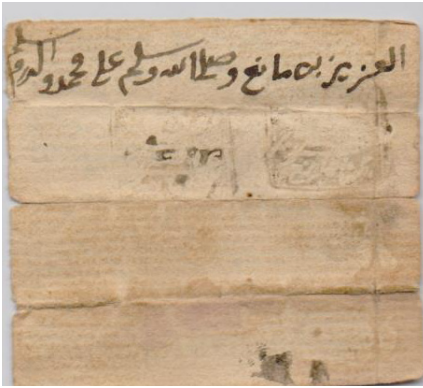 العزيز بن مانع وصلى الله وسلم على محمد وآله وسلم